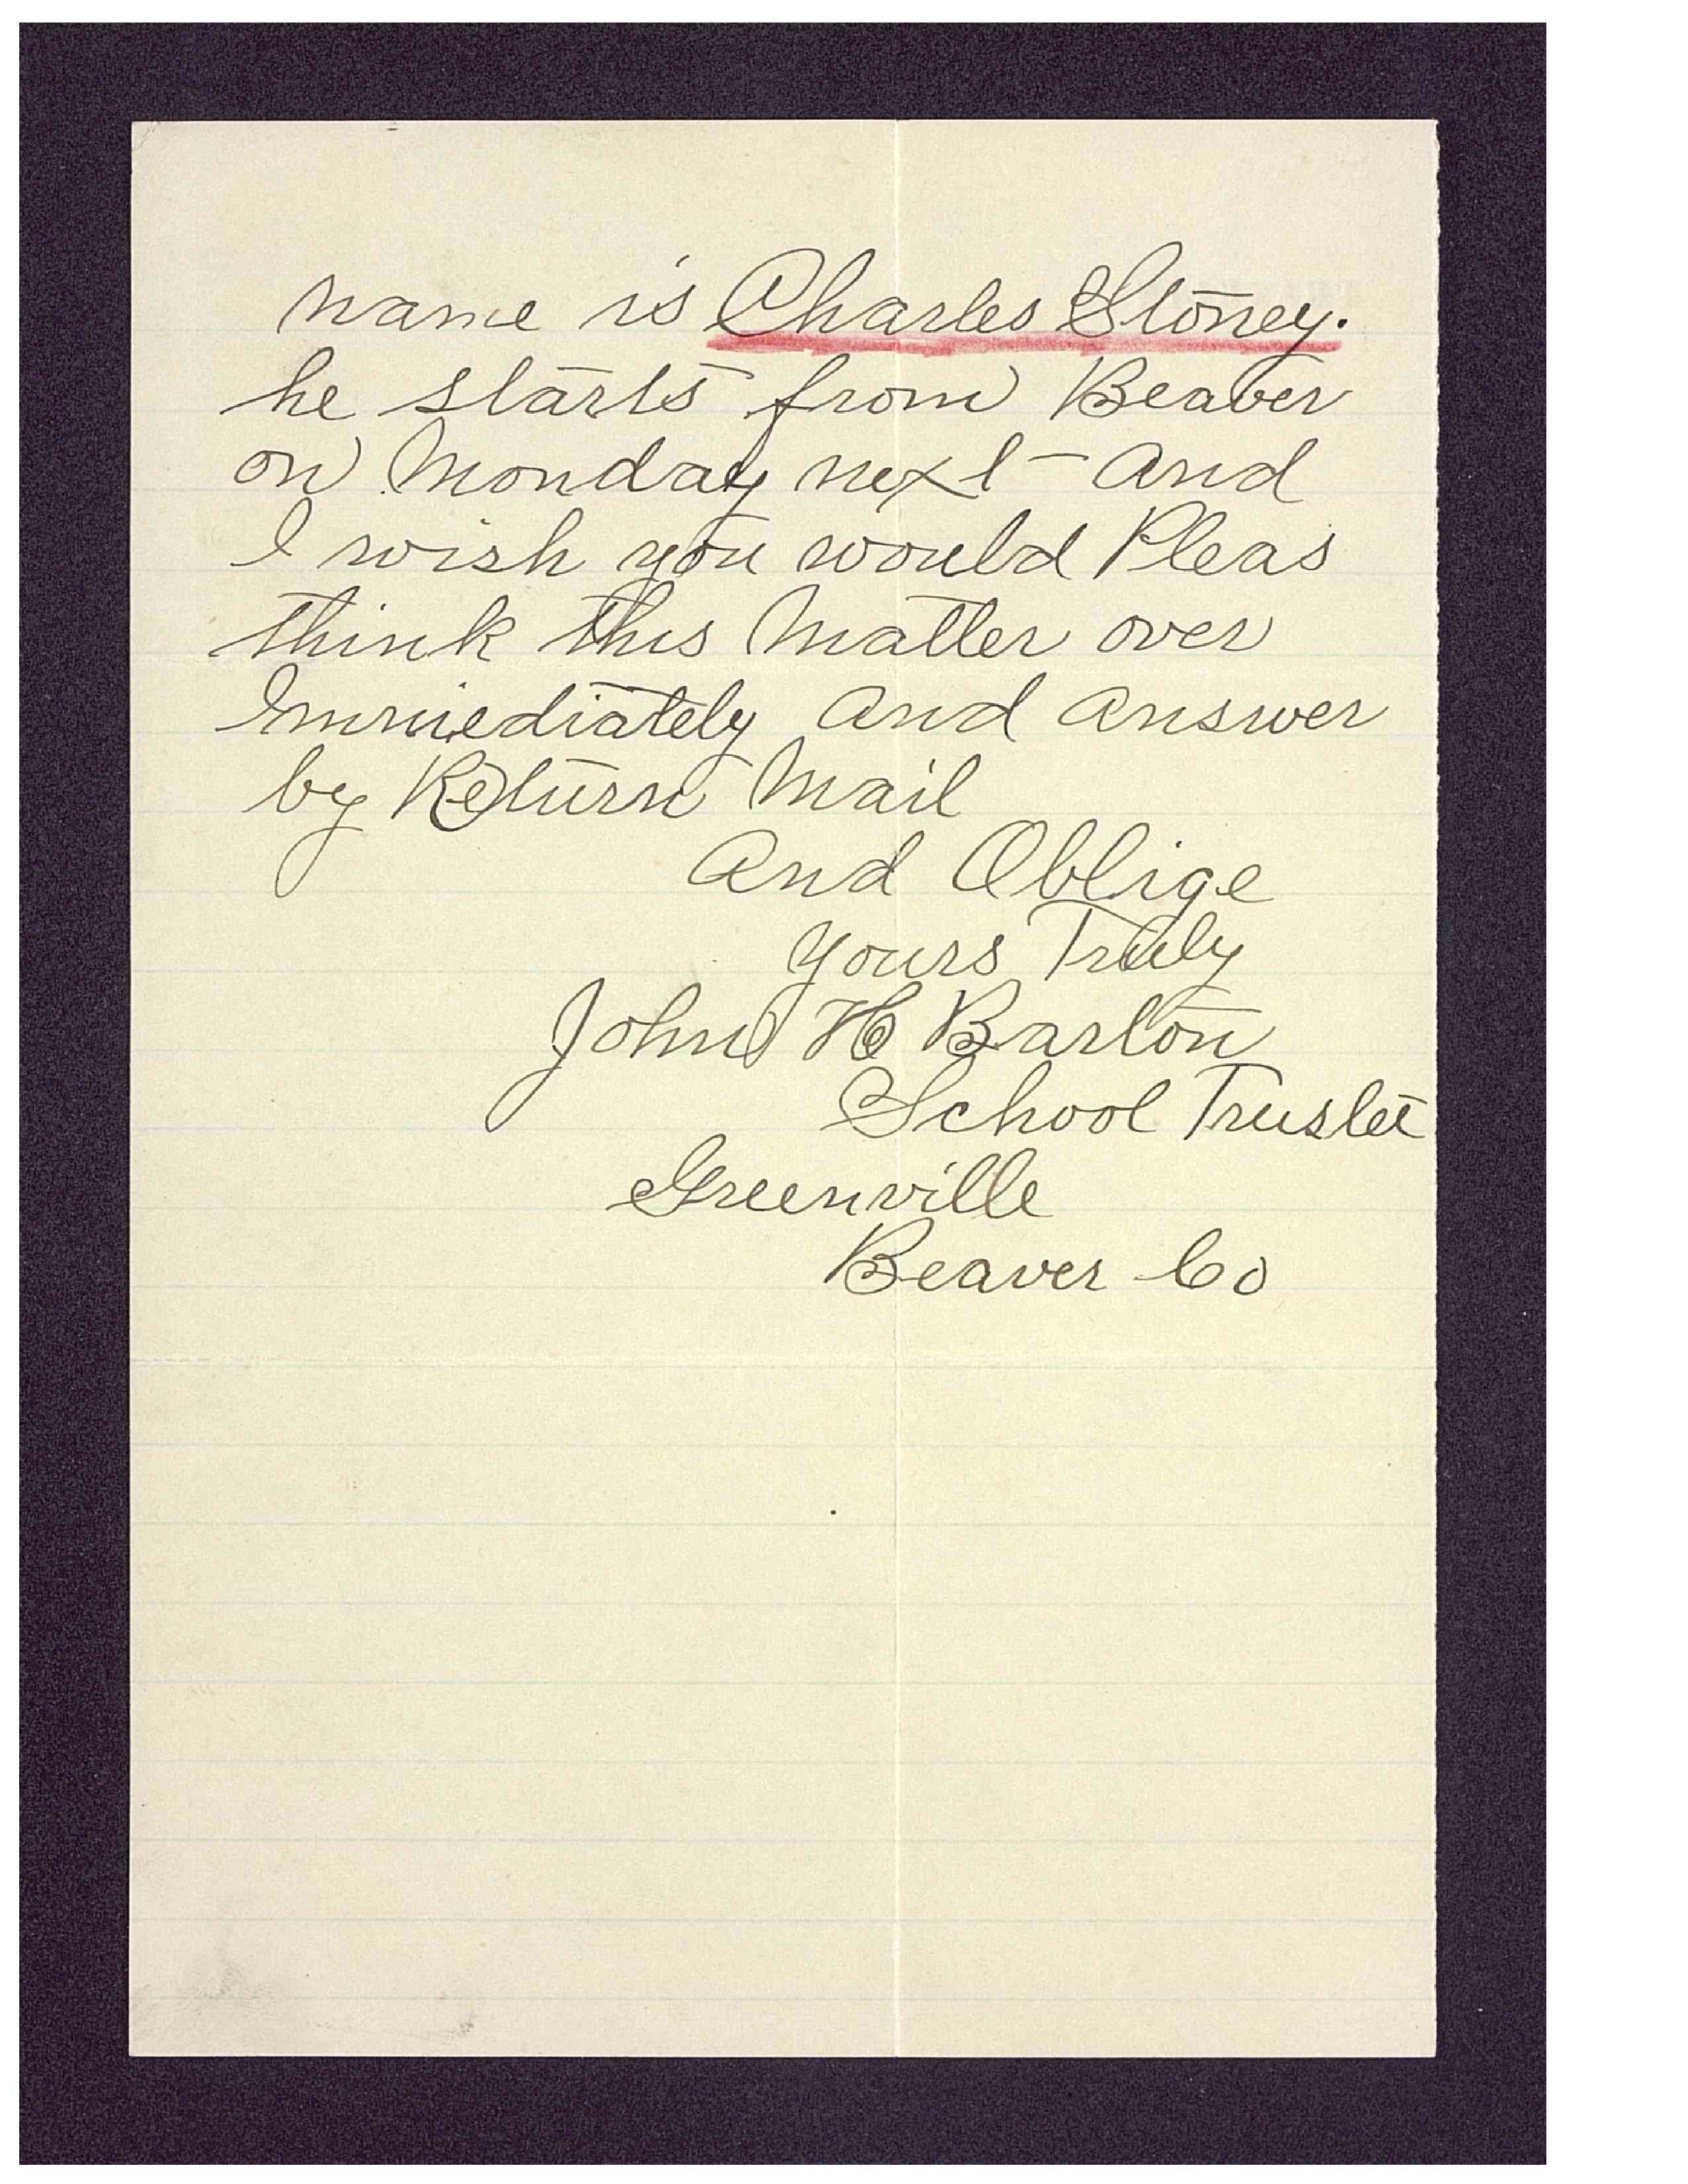 name is Charles Stoney.
he starts from Beaver
on Monday next and
I wish you would Pleas
think this Matter over
Immediately and answer
by Return Mail
And Oblige
Yours Truly
John H Barton
School Trustee
Greenville
Beaver Co